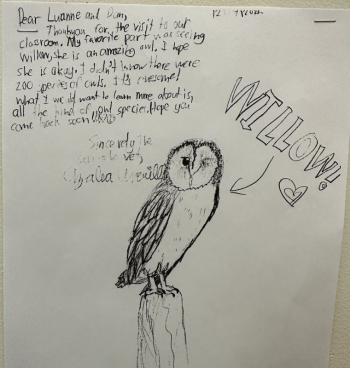 Dear Luanne and Dan,
Thankyou for the visit to our
classroom. My favorite part was seeing
Willow, she is an amazing owl. I hope
she is okay. I didn't know there were
200 species of owls. It's awesome!
What I would want to learn more about is,
all the kind of owl species. Hope you
come back soon!
Sincerely, the
Azalea
WILLOW!